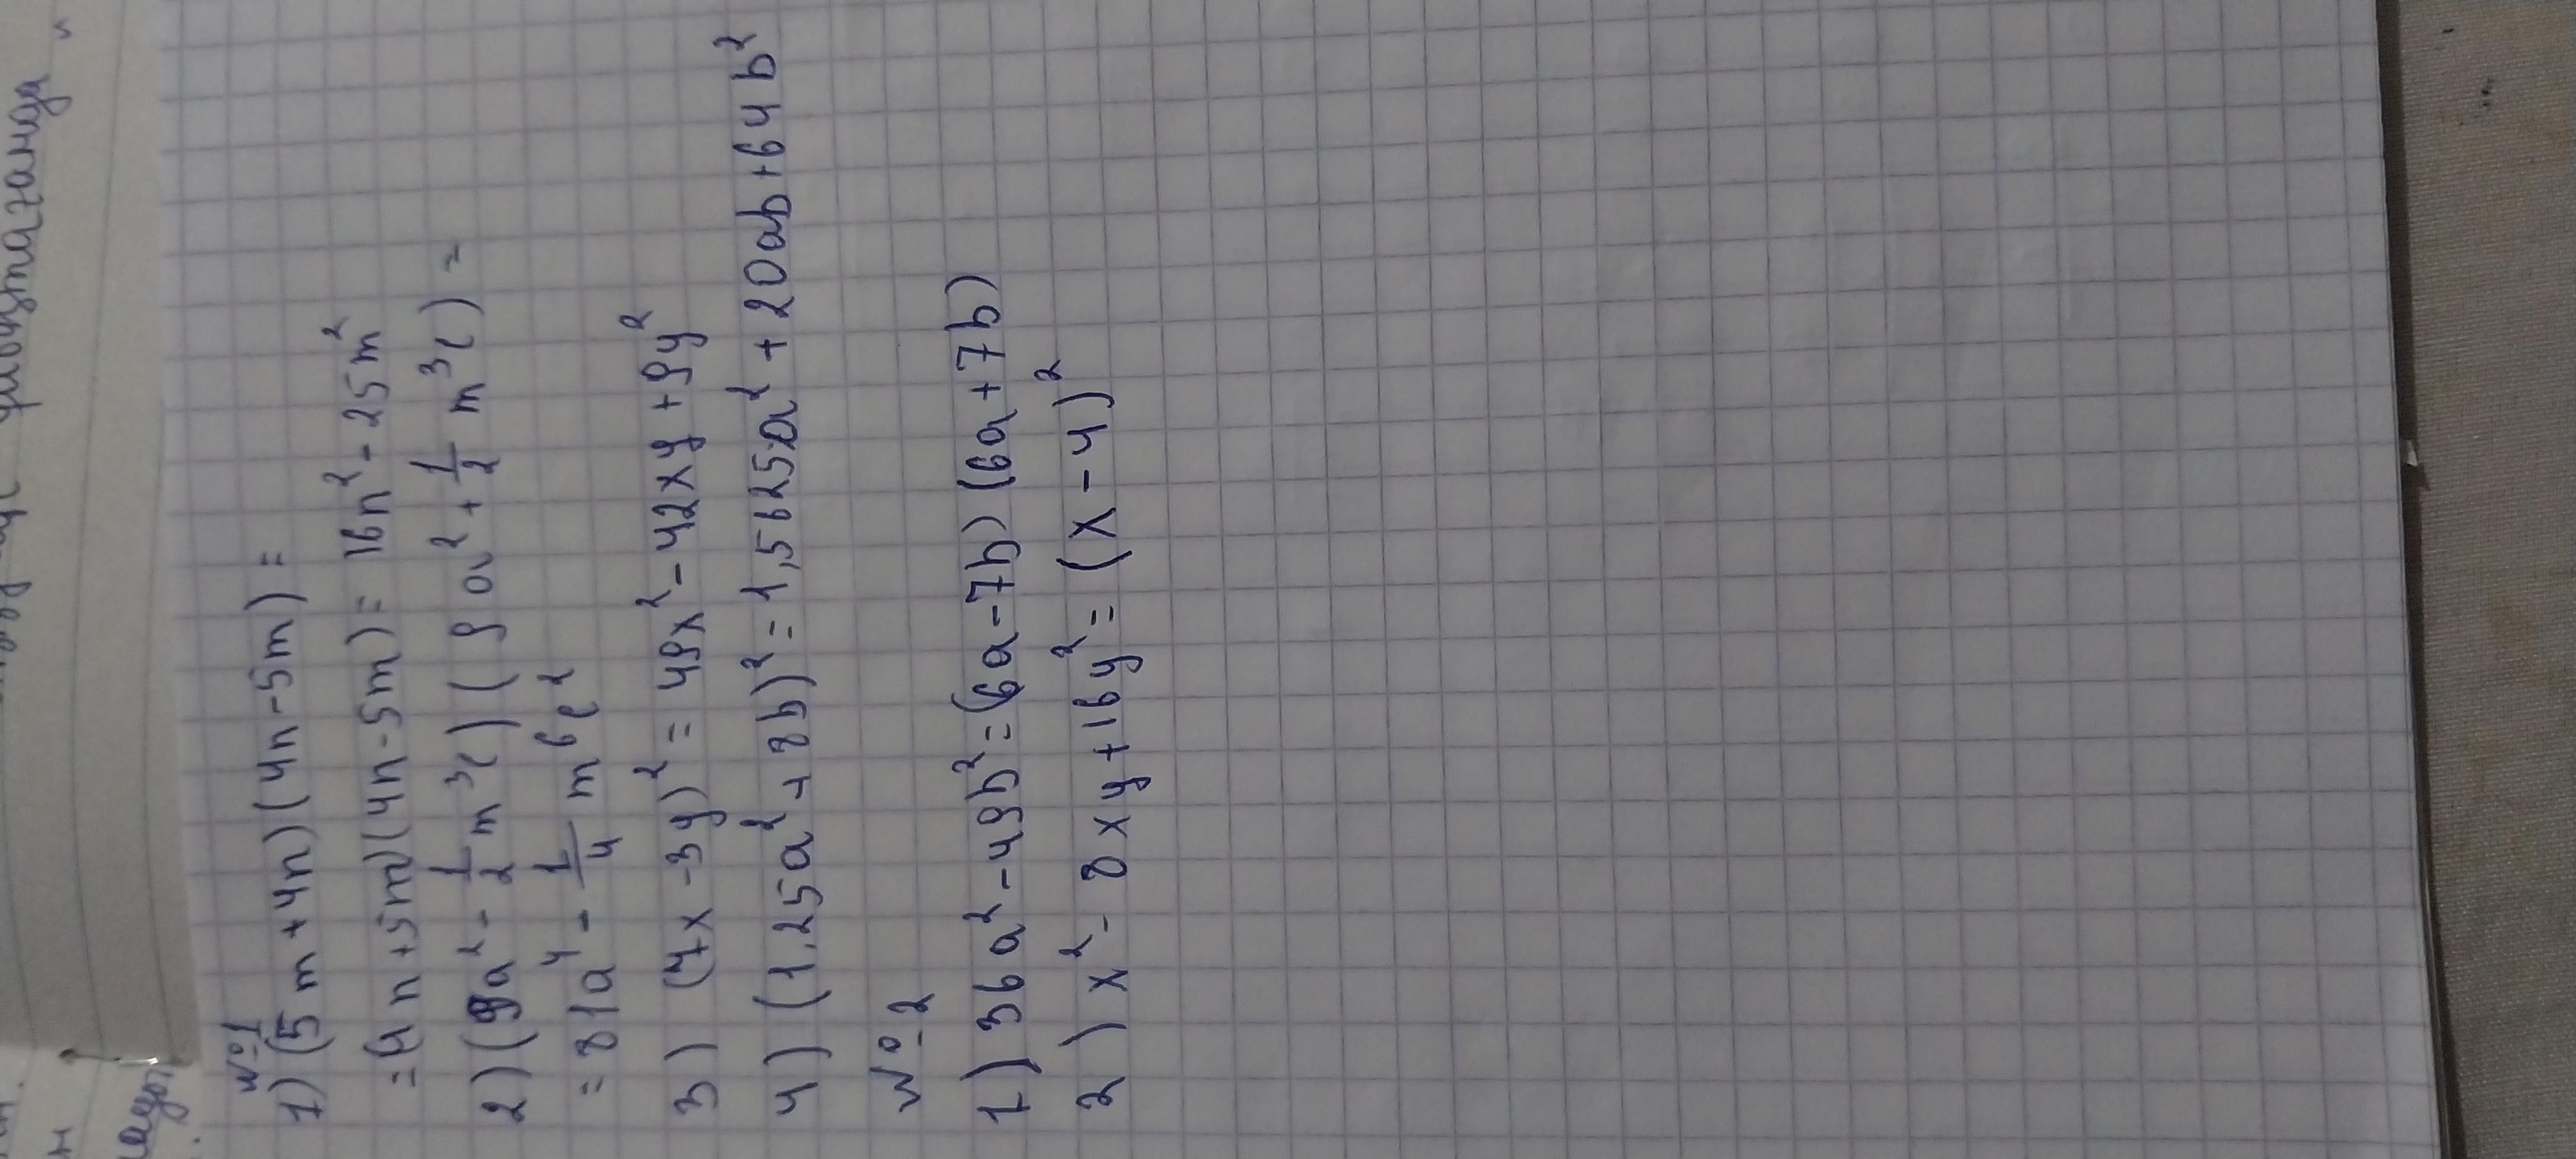 №1
1) (5m+4n)(4n-5m)=
=(4n+5m)(4n-5m)=16n²-25m²
2) (9a²-1/2 m³c)(9a²+1/2 m³c)=
=81a⁴-1/4 m⁶c²
3) (7x-3y)²=49x²-42xy+9y²
4) (1,25a²+8b)²=1,5625a²+20ab+64b²
№2
1) 36a²-49b²=(6a-7b)(6a+7b)
2) x²-8xy+16y²=(x-4)²